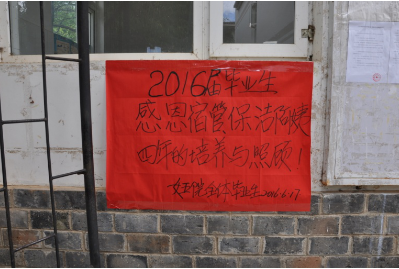 2016届毕业生
感恩宿管保洁阿姨
四年的培养与照顾！
全体毕业生 2016.6.17